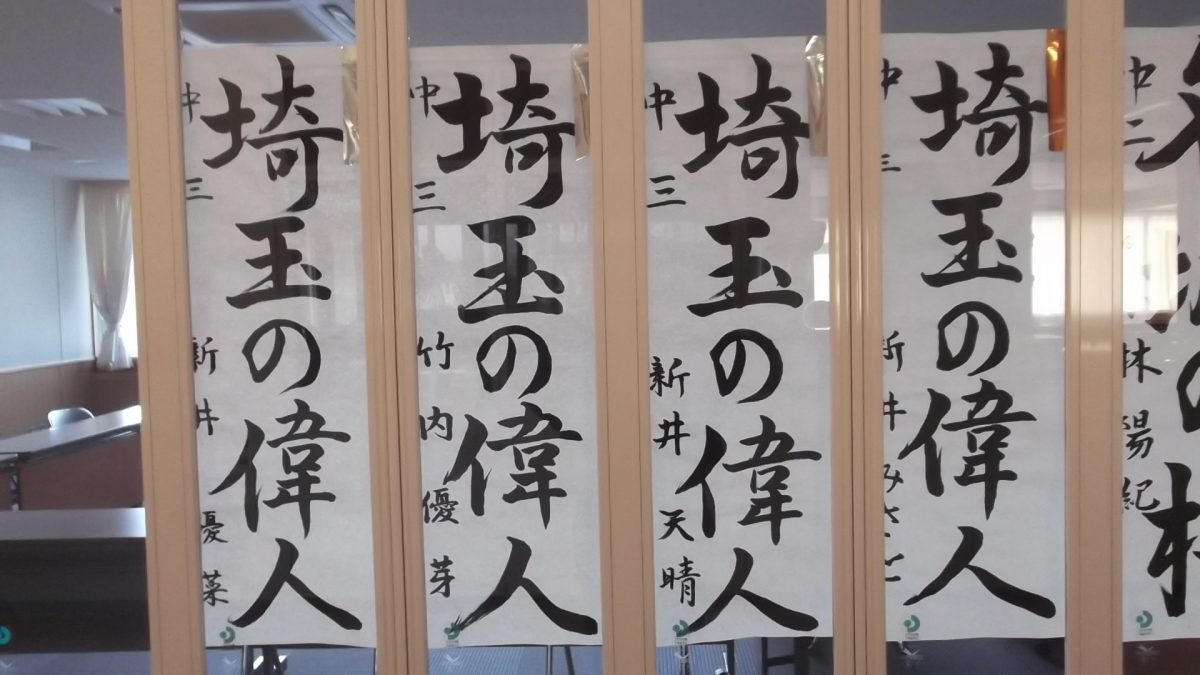 埼玉の偉人
中三 新井優菜
埼玉の偉人
中三 竹内優芽
埼玉の偉人
中三 新井天晴
埼玉の偉人
中三 新井みさと
中二 林陽紀